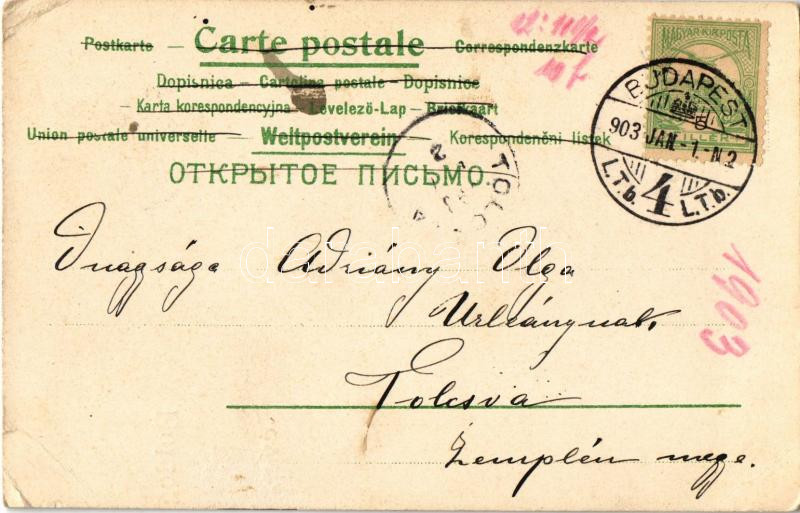 Postkarte – Carte postale – Correspondenzkarte
Dopisnica – Cartolina postale – Dopisnice
Karta korespondencyjna – Levelező-Lap – Briefkaart
Union postale universelle – Weltpostverein – Korespondenční lístek
ОТКРЫТОЕ ПИСЬМО
10 f
MAGYAR KIR. POSTA
BUDAPEST
903 JAN -1. N2
4
L.T.b. L.T.b.
TOLCS
1903
darabanth
Őnagysága Adriány Olga
Urleánynak
Tolcsva
Zemplén megye.